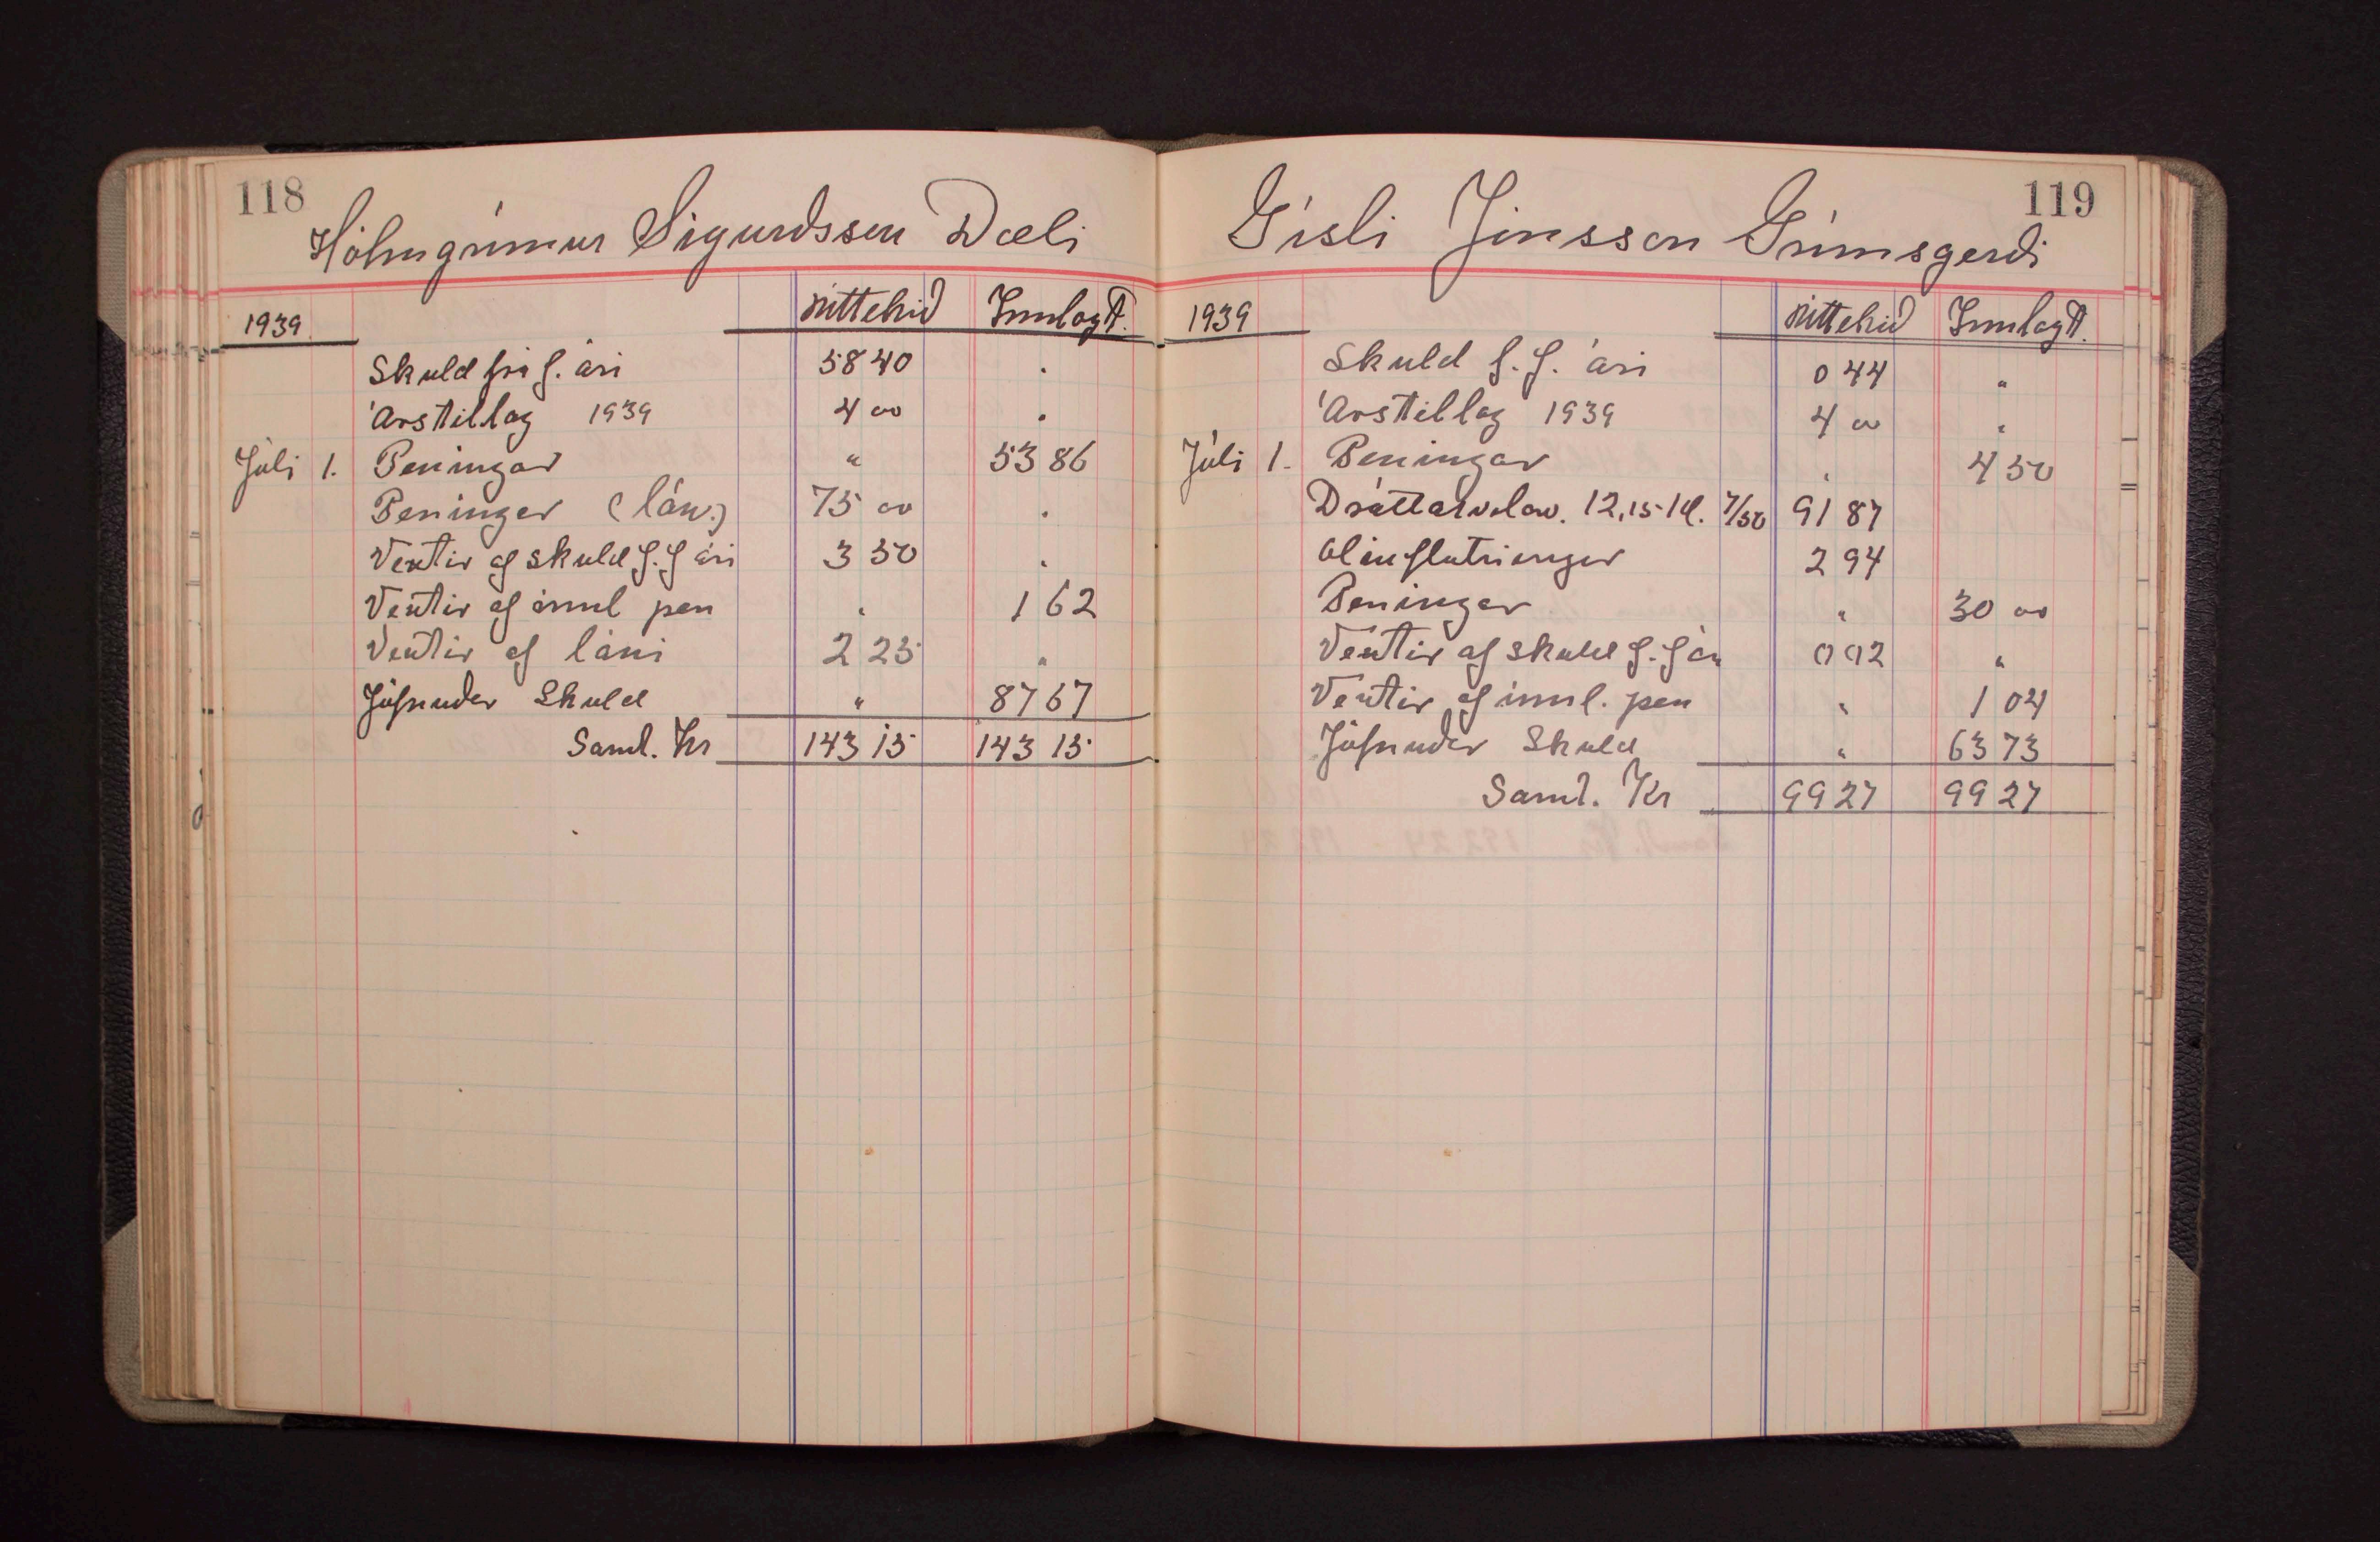 118
Hólmgrímur Sigurdsson Dæli
1939. úttekid Innlagt.
Skuld frá f. ári 58 40 .
Árstillag 1939 4 00 .
Júli 1. Peningar " 53 86
Peningar (lán.) 75 00 .
Vextir af skuld f. f ári 3 50 .
Vextir af innl pen . 1 62
Vextir af láni 2 25 "
Jöfnuder Skuld " 87 67
Saml. Kr 143 15 143 15
119
Gísli Jónsson Grímsgerdi
1939 úttekid Innlagt.
Skuld f. f. ári 0 44 "
Árstillag 1939 4 00 "
Júli 1. Peningar . 4 50
Dráttarvelav. 12,15 kl. 7/50 91 87
Olíuflutningur 2 94
Peningar " 30 00
Vextir af skuld f. f ár 0 02 "
Vextir af innl. pen " 1 04
Jöfnuder Skuld " 63 73
Saml. Kr 99 27 99 27